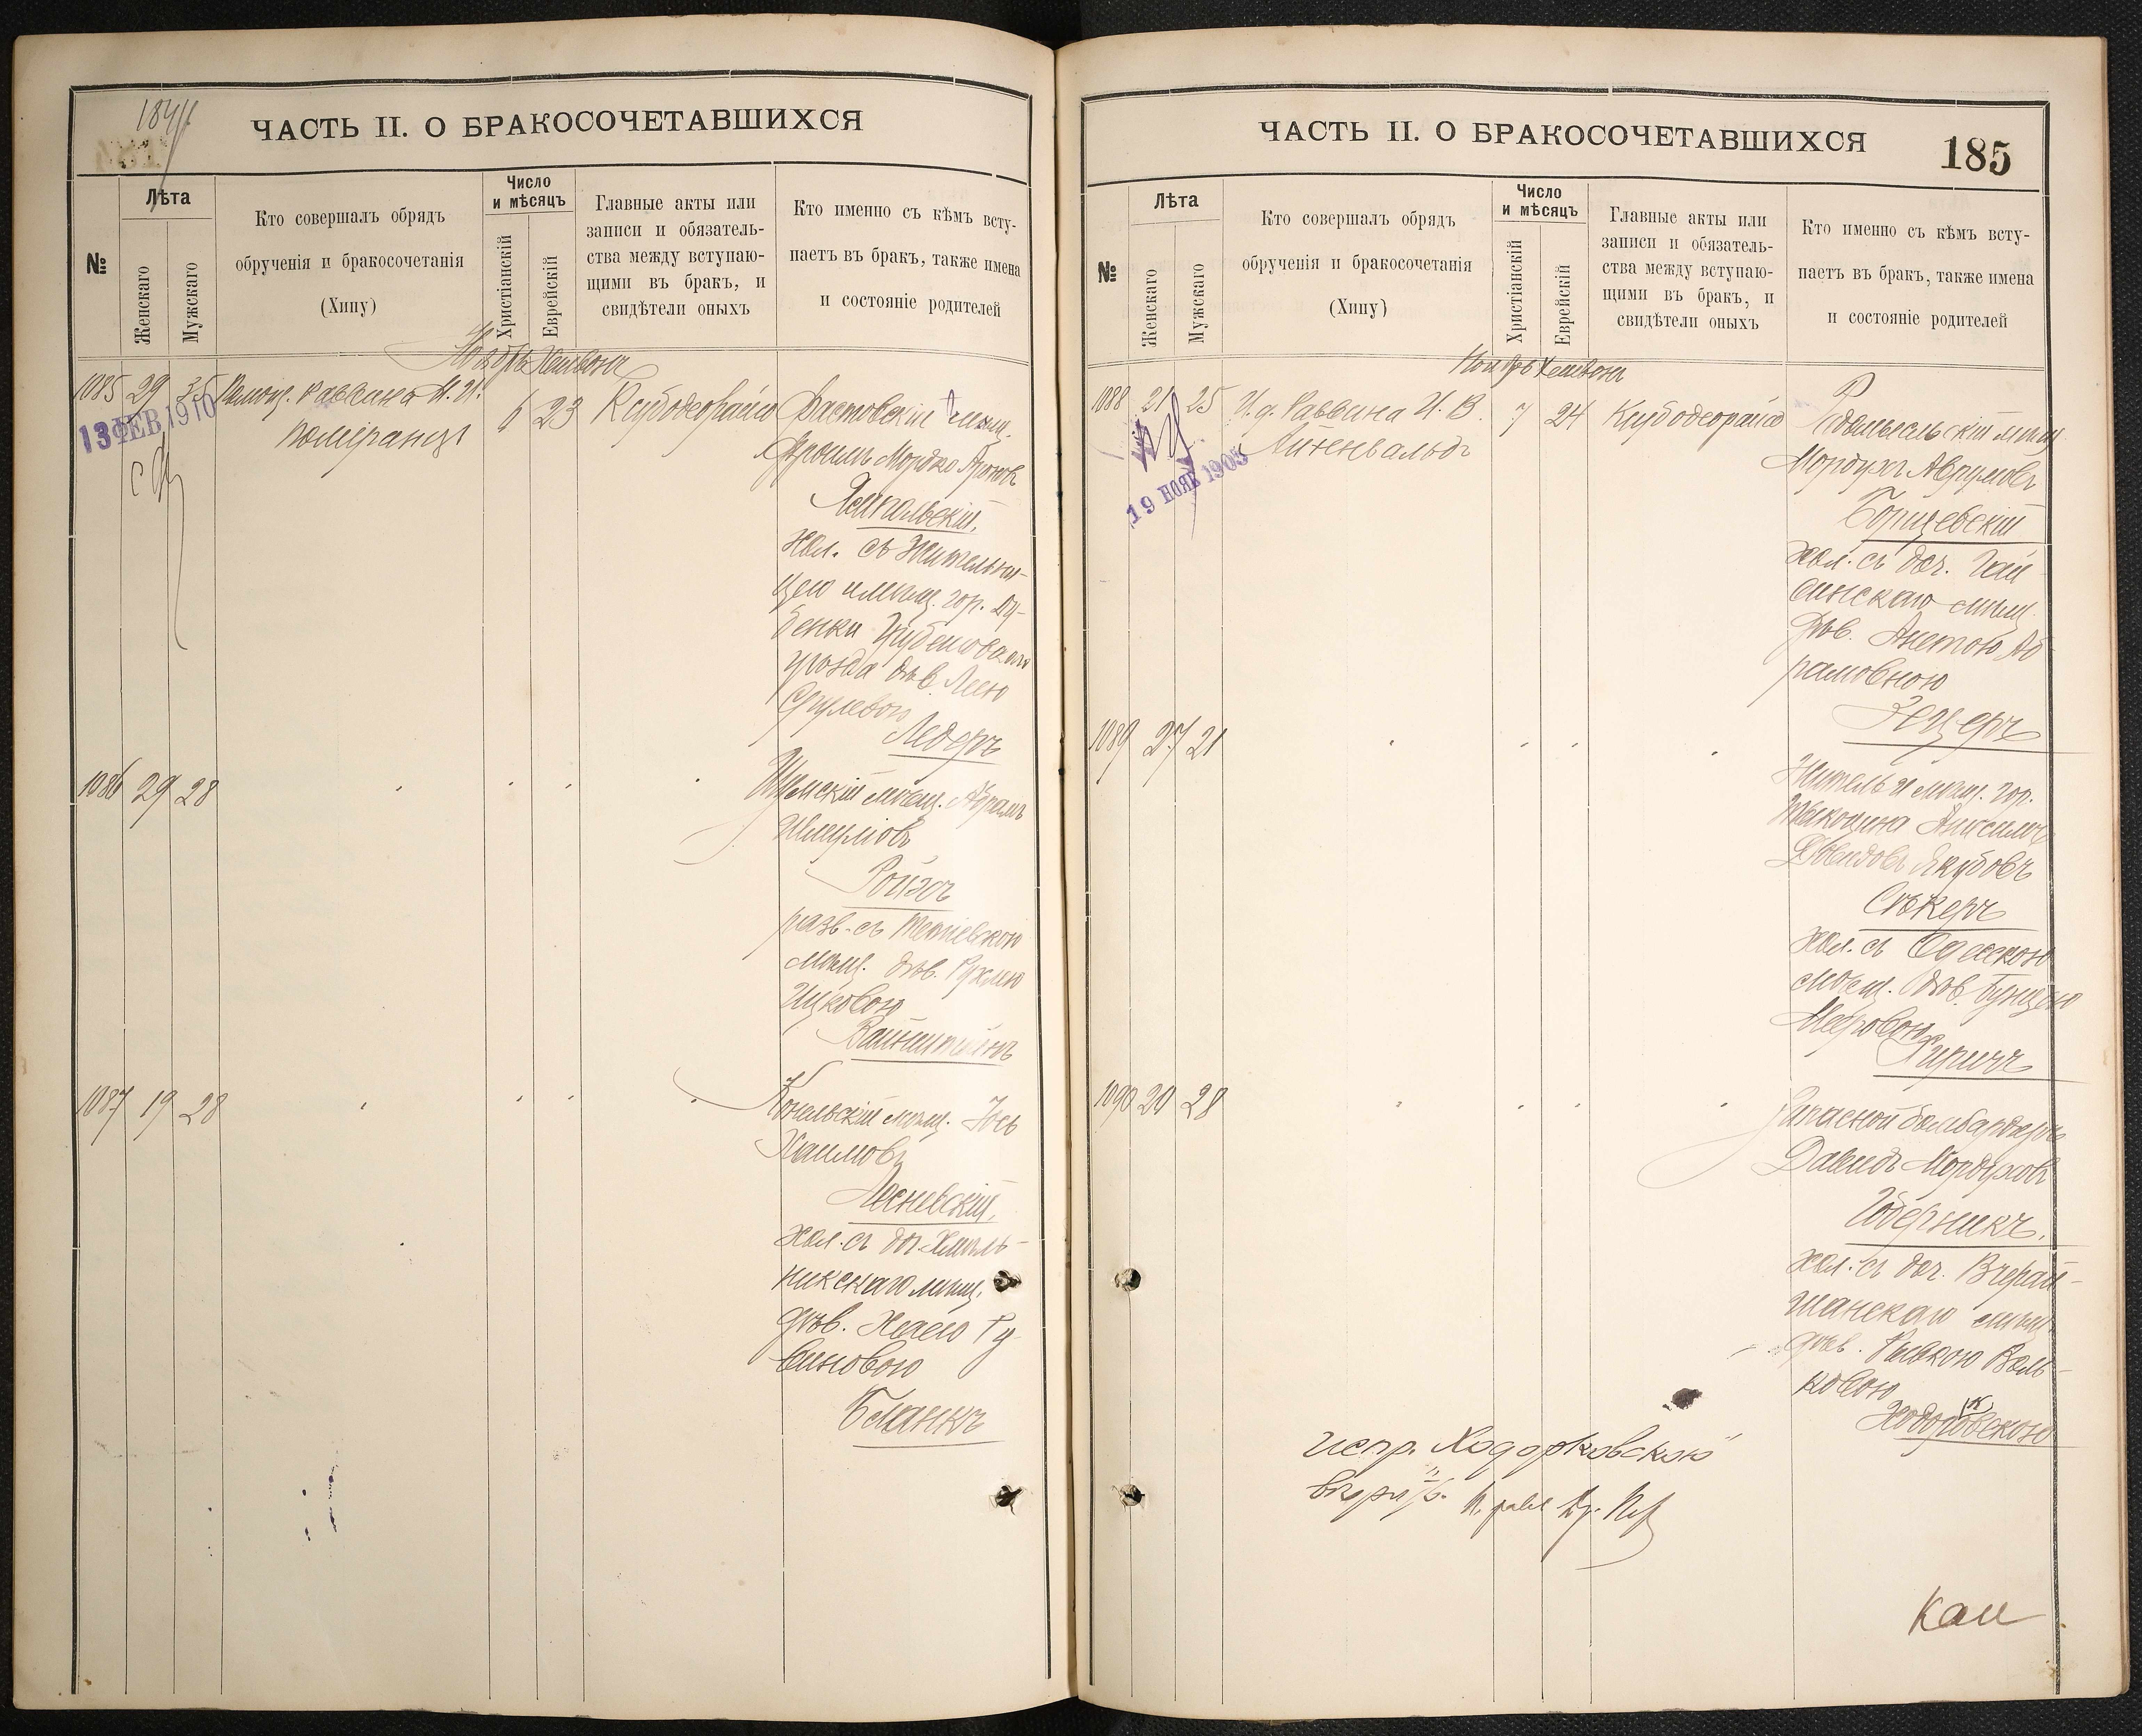 184
ЧАСТЬ II. О БРАКОСОЧЕТАВШИХСЯ
№
Лѣта
Женскаго
Мужскаго
Кто совершалъ обрядъ
обрученія и бракосочетанія
(Хипу)
Число
и мѣсяцъ
Христіанскій
Еврейскій
Главные акты или
записи и обязатель-
ства между вступаю-
щими въ бракъ, и
свидѣтели оныхъ
Кто именно съ кѣмъ всту-
паетъ въ бракъ, также имена
и состояніе родителей
Ноябрь Хешвонъ
1085 29 35 Помощ. раввина М. И.
Померанцъ
6 23 Ксубодеорайсо
Фастовскій мѣщ.
Фроимъ Мордко Ароновъ
Ямпольскій,
хол. съ жительни-
цею и мѣщ. гор. Ду-
бенки Грубешовскаго
уѣзда дѣв. Леею
Срулевою
Ледеръ
13 ФЕВ 1910
1086 29 28
Шумскій мѣщ. Абрамъ
Шмулiовъ
Ройзъ
разв. съ Тетіевскою
мѣщ. дѣв. Рухлею
Ицковою
Вайнштейнъ
1087 19 28
Конельскій мѣщ. Іось
Хаимовъ
Лесневскій,
хол. съ доч. Хмѣль-
никскаго мѣщ.
дѣв. Хаею Ру-
виновою
Бланкъ
ЧАСТЬ II. О БРАКОСОЧЕТАВШИХСЯ
185
№
Лѣта
Женскаго
Мужскаго
Кто совершалъ обрядъ
обрученія и бракосочетанія
(Хипу)
Число
и мѣсяцъ
Христіанскій
Еврейскій
Главные акты или
записи и обязатель-
ства между вступаю-
щими въ бракъ, и
свидѣтели оныхъ
Кто именно съ кѣмъ всту-
паетъ въ бракъ, также имена
и состояніе родителей
Ноябрь Хешвонъ
1088 21 25 И. д. Раввина И. В.
Айненвальдъ
7 24 Ксубодеорайсо
Радомысльскій мѣщ.
Мордухъ Аврумовъ
Борщевскій
хол. съ доч. Гай-
синскаго мѣщ.
дѣв. Анетою Аб-
рамовною
Зецеръ
19 НОЯБ 1905
1089 27 21
Житель и мѣщ. гор.
Тыкоцина
Давидовъ Якубовъ
Сѣкеръ
хол. съ Одесскою
мѣщ. дѣв. Бунцею
Мееровою
1090 20 28
Запасной бомбардиръ
Давидъ Мордуховъ
Гоберникъ,
хол. съ доч. Вчерай-
шанскаго мѣщ.
дѣв. Рывкою Воль-
ковою
Ходоровскою
к
испр. Ходорковскою